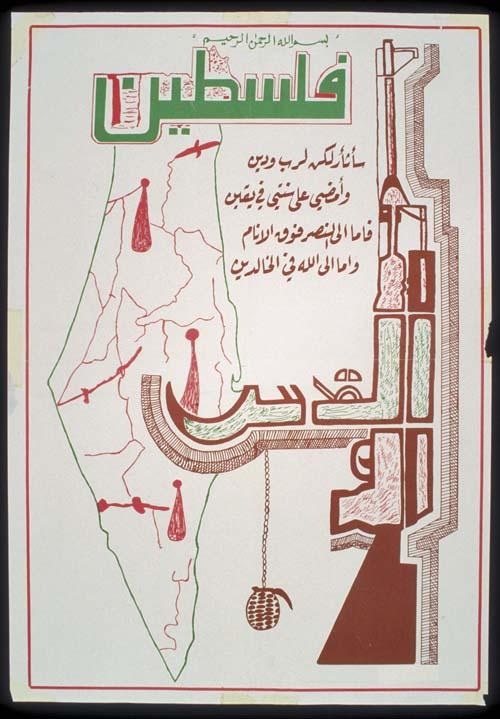 "بسم الله الرحمن الرحيم"
فلسطين
سأثأر لكن لرب ودين
وأمضي على سنتي في يقين
فاما الى النصر فوق الانام
واما الى الله في الخالدين
القدس